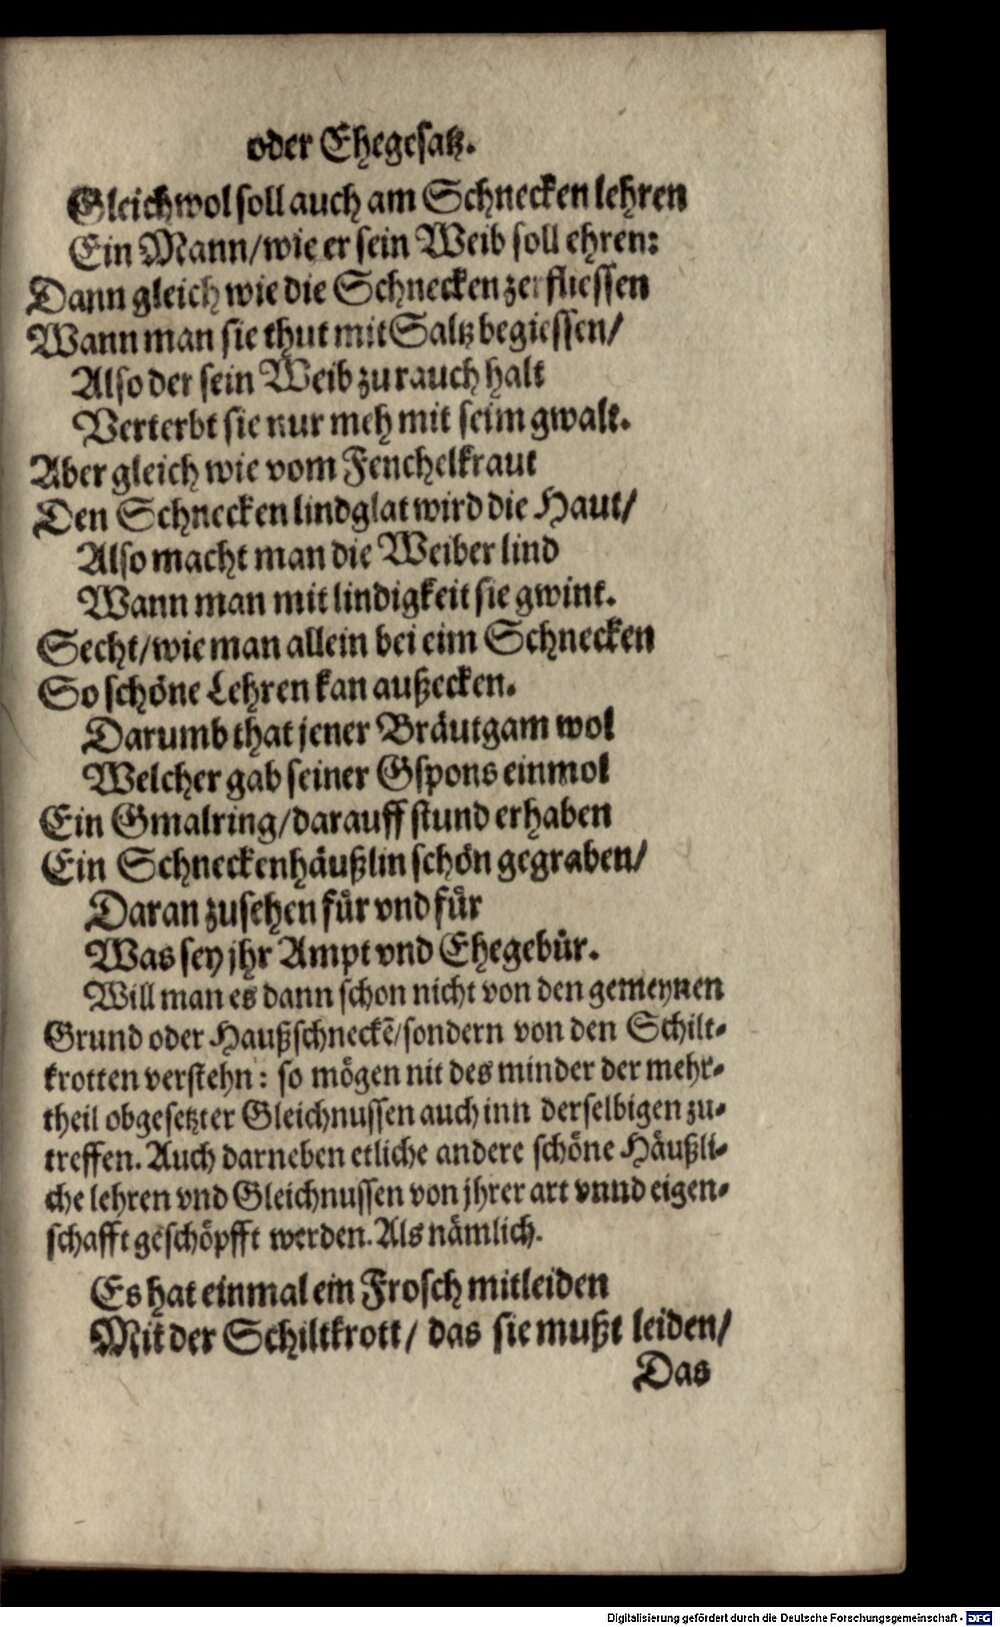 oder Ehegesatz.
Gleichwol soll auch am Schnecken lehren
Ein Mann/ wie er sein Weib soll ehren:
Dann gleich wie die Schnecken zerfliessen
Wann man sie thut mit Saltz begiessen/
Also der sein Weib zu rauch halt
Verterbt sie nur meh mit seim gwalt.
Aber gleich wie vom Fenchelkraut
Den Schnecken lindglat wird die Haut/
Also macht man die Weiber lind
Wann man mit lindigkeit sie gwint.
Secht/ wie man allein bei eim Schnecken
So schöne Lehren kan außecken.
Darumb that jener Bräutgam wol
Welcher gab seiner Gspons einmol
Ein Gmalring/ darauff stund erhaben
Ein Schneckenhäußlin schön gegraben/
Daran zusehen für vnd für
Was sey jhr Ampt vnd Ehegebür.
Will man es dann schon nicht von den gemeynen
Grund oder Haußschneckē/ sondern von den Schilt-
krotten verstehn: so mögen nit des minder der mehr-
theil obgesetzter Gleichnussen auch inn derselbigen zu-
treffen. Auch darneben etliche andere schöne Häußli-
che lehren vnd Gleichnussen von jhrer art vnnd eigen-
schafft geschöpfft werden. Als nämlich.
Es hat einmal ein Frosch mitleiden
Mit der Schiltkrott/ das sie mußt leiden/
Das
Digitalisierung gefördert durch die Deutsche Forschungsgemeinschaft - DFG